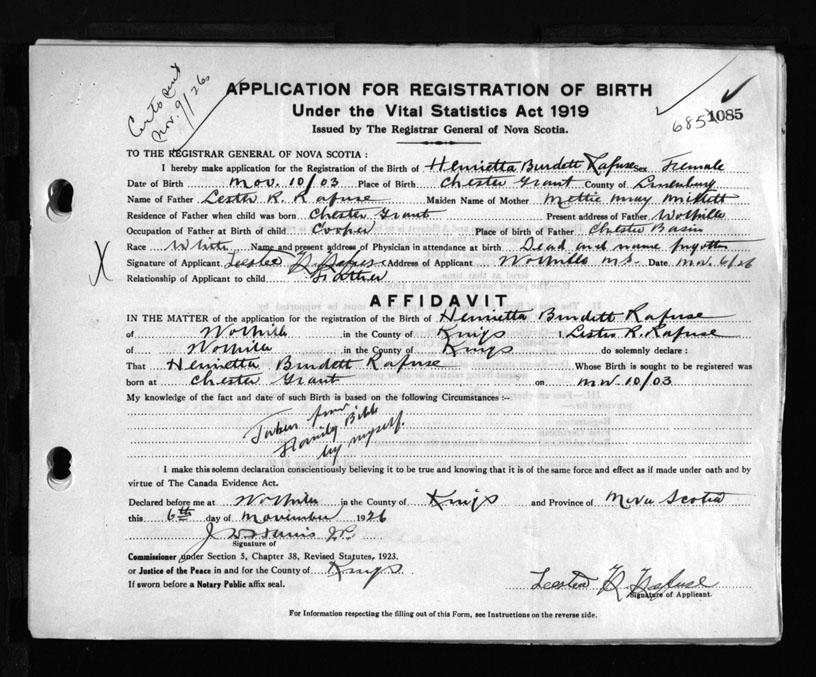 Cert sent
Nov. 9/26
APPLICATION FOR REGISTRATION OF BIRTH
Under the Vital Statistics Act 1919
Issued by The Registrar General of Nova Scotia.
685 1085
TO THE REGISTRAR GENERAL OF NOVA SCOTIA :
I hereby make application for the Registration of the Birth of Henrietta Burdett Rafuse Sex Female
Date of Birth Nov. 10/03 Place of Birth Chester Grant County of Lunenburg
Name of Father Lester R. Rafuse Maiden Name of Mother Mettie May
Residence of Father when child was born Chester Grant Present address of Father Wolfville
Occupation of Father at Birth of child Cooper Place of birth of Father Chester Basin
Race White Name and present address of Physician in attendance at birth Dead and name forgotten
Signature of Applicant Lester R Rafuse Address of Applicant Wolfville N.S. Date Nov. 6/26
Relationship of Applicant to child Father
X
AFFIDAVIT
IN THE MATTER of the application for the registration of the Birth of Henrietta Burdett Rafuse
of Wolfville in the County of Kings I, Lester R. Rafuse
of Wolfville in the County of Kings do solemnly declare :
That Henrietta Burdett Rafuse Whose Birth is sought to be registered was
born at Chester Grant on Nov 10/03
My knowledge of the fact and date of such Birth is based on the following Circumstances :-
Taken from
Family Bible
by myself.
I make this solemn declaration conscientiously believing it to be true and knowing that it is of the same force and effect as if made under oath and by
virtue of The Canada Evidence Act.
Declared before me at Wolfville in the County of Kings and Province of Nova Scotia
this 6th day of November 1926
J. P.
Signature of
Commissioner under Section 5, Chapter 38, Revised Statutes, 1923.
or Justice of the Peace in and for the County of Kings
If sworn before a Notary Public affix seal.
Lester R. Rafuse
Signature of Applicant.
For Information respecting the filling out of this Form, see Instructions on the reverse side.